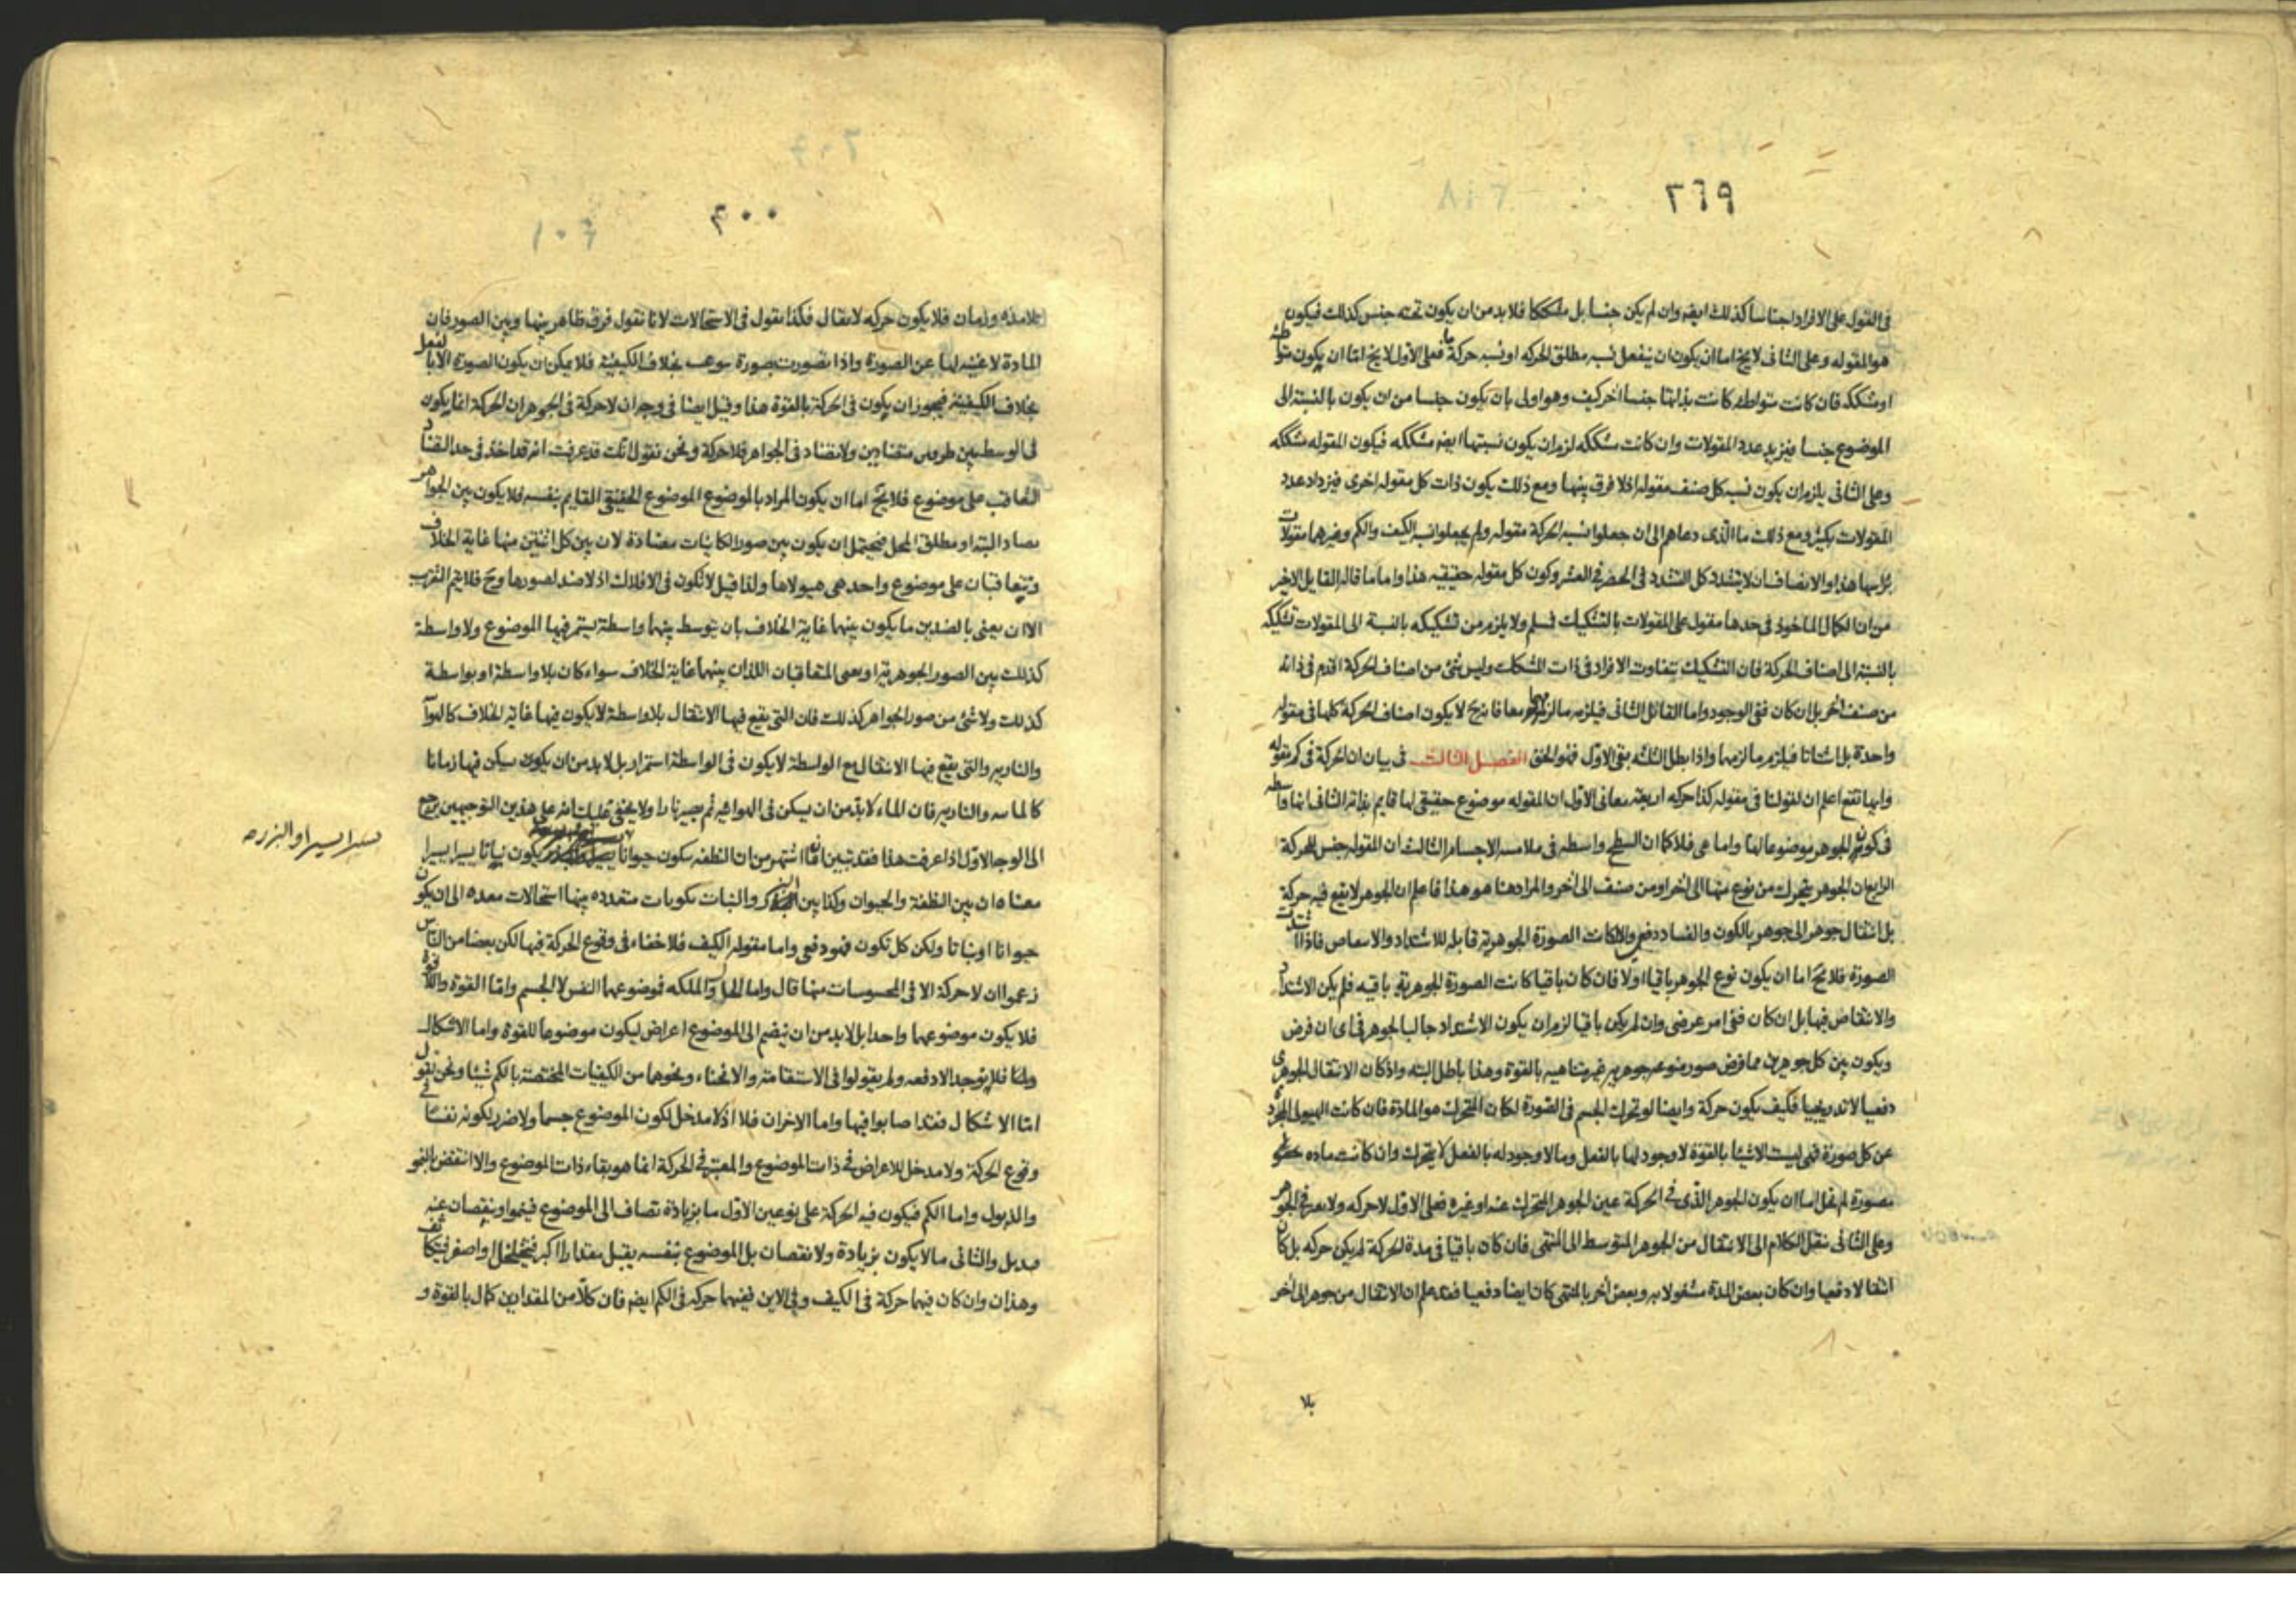 ٢٦٩
فى القول على الافراد اجناسا كذلك ايضه وان لم يكن جنسا بل مشككا فلا بد من ان يكون تحته جنس كذلك فيكون
هو المقوله وعلى الثانى لايخ اما ان يكون ان ينفعل نسبه مطلق الحركه او نسبه حركة ما فعلى الاول لايخ اما ان يكون متواطئه
او مشككه فان كانت متواطئه كانت بذاتها جنسا اخر كيف وهو اولى بان يكون جنسا من ان يكون بالنسبة الى
الموضوع جنسا فيزيد عدد المقولات وان كانت مشككه لزم ان يكون نسبتها ايضه مشككه فيكون المقوله مشككه
وعلى الثانى يلزم ان يكون نسبه كل صنف مقوله اذ لا فرق بينها ومع ذلك يكون ذات كل مقوله اخرى فيزداد عدد
المقولات بكثير ومع ذلك ما الذى دعاهم الى ان جعلوا نسبه الحركة مقوله ولم يجعلوا نسبه الكيف والكم وغيرهما مقولات
برأسها هذا والانصاف ان لا يتشدد كل التشدد فى الحصر فى العشر وكون كل مقوله حقيقيه هذا واما ما قاله القايل الاخير
من ان الكمال الماخوذ فى حدها مقول على المقولات بالتشكيك فسلم ولا يلزم من تشكيكه بالنسبة الى المقولات تشكيكه
بالنسبة الى اصناف الحركة فان التشكيك بتفاوت الافراد فى ذات المشكك وليس شئ من اصناف الحركة اقدم فى ذاته
من صنف اخر بل ان كان ففى الوجود واما القائل الثانى فيلزمه ما لزمهما معا فانه ح لا يكون اصناف الحركة كلها فى مقوله
واحدة بل اشتاتا فيلزم ما لزمها واذا بطل الثلثه بقى الاول فهو الحق الفصل الثالث فى بيان ان الحركة فى كم مقوله
وايها تقع اعلم ان لقولنا فى مقوله كذا حركه اربعة معانى الاول ان المقوله موضوع حقيقى لها قايم بذاته الثانى انها واسطه
فى كون الجوهر موضوعا لها واما هى فلا كما ان السطح واسطه فى ملامسه الاجسام الثالث ان المقوله جنس للحركة
الرابع ان الجوهر يتحرك من نوع منها الى اخر او من صنف الى اخر والمراد هنا هو هذا فاعلم ان الجوهر لا يقع فيه حركة
بل انتقال جوهر الى جوهر بالكون والفساد دفعى والا كانت الصورة الجوهرية قابله للاشتداد والانتقاص فاذا اشتدت
الصورة فلا يخ اما ان يكون نوع الجوهر باقيا اولا فان كان باقيا كانت الصورة الجوهرية باقيه فلم يكن الاشتداد
والانتقاص فيها بل ان كان ففى امر عرضى وان لم يكن باقيا لزم ان يكون الاشتداد جالبا لجوهر فى اى ان فرض
ويكون بين كل جوهرين مما فرض صور نوعيه جوهريه غير متناهيه بالقوة وهذا باطل البته واذ كان الانتقال الجوهرى
دفعيا لا تدريجيا فكيف يكون حركة وايضا لو تحرك الجسم فى الصورة لكان المتحرك هو المادة فان كانت الهيولى المجردة
عن كل صورة فهى ليست الا شيئا بالقوة لا وجود لها بالفعل وما لا وجود له بالفعل لا يتحرك وان كانت ماده
بصورة لم يخل اما ان يكون الجوهر الذى فى الحركة عين الجوهر المتحرك عنه او غيره فعلى الاول لا حركه ولا تغير فى الجوهر
وعلى الثانى ننقل الكلام الى الانتقال من الجوهر المتوسط الى المنتهى فان كان باقيا فى مدة الحركة لم يكن حركه بل كان
انتقالا دفعيا وان كان بعض المدة مشغولا به وبعض اخر بالمنتهى كان ايضا دفعيا فقد علم ان الانتقال من جوهر الى اخر
بلا
٤٠٠
بلا مدة وزمان فلا يكون حركه لا يقال فكذا نقول فى الاستحالات لانا نقول فرق ظاهر بينها وبين الصور فان
المادة لا غنية لها عن الصورة واذا تصورت بصورة بخلاف الكيفية فلا يمكن ان يكون الصورة الا بالفعل
بخلاف الكيفية فيجوز ان يكون فى الحركة بالقوة هذا وقيل ايضا فى وجه ان لا حركة فى الجوهر ان الحركة انما يكون
فى الوسط بين طرفين متضادين ولا تضاد فى الجواهر فلا حركة ونحن نقول انك قد عرفت انه قد اخذ فى حد التضاد
التعاقب على موضوع فلا يخ اما ان يكون المراد بالموضوع الموضوع الحقيقى القايم بنفسه فلا يكون بين الجواهر
تضاد البته او مطلق المحل فيحتمل ان يكون بين صور الكائنات مضادة لان بين كل اثنتين منها غاية الخلاف
وتتعاقبان على موضوع واحد هى هيولاها ولذا قيل لا تكون فى الافلاك اذ لا ضد لصورها وح فلا يتم التقريب
الا ان يعنى بالضدين ما يكون بينهما غاية الخلاف بان يتوسط بينهما واسطة يستمر فيها الموضوع ولا واسطة
كذلك بين الصور الجوهرية او يعنى المتعاقبان اللذان بينهما غاية الخلاف سواء كان بلا واسطة او بواسطة
كذلك ولا شئ من صور الجواهر كذلك فان التى يقع فيها الانتقال بلا واسطة لا يكون فيها غاية الخلاف كالهوآ
والناريه والتى يقع فيها الانتقال مع الواسطة لا يكون فى الواسطة استمرار بل لابد من ان يكون سيكن فيها زمانا
كالماييه والناريه فان الماء لابد من ان يسكن فى الهوائيه ثم يصير نارا ولا يخفى عليك انه على هذين التوجيهين يرجع
الى الوجه الاول اذا عرفت هذا فقد تبين ان ما اشتهر من ان النطفه يتكون حيوانا يكون نباتا يسيرا يسيرا
يسيرا يسيرا والبزره
معناه ان بين النطفة والحيوان وكذا بين البزر والنبات تكونات متعدده بينها استحالات معده الى ان يكون
حيوانا او نباتا ولكن كل تكون فهو دفعى واما مقوله الكيف فلا خفاء فى وقوع الحركة فيها لكن بعضا من الناس
زعموا ان لا حركة الا فى المحسوسات منها قال واما الحال والملكه فموضوعهما النفس لا الجسم واما القوة واللاقوة
فلا يكون موضوعهما واحدا بل لابد من ان ينضم الى الموضوع اعراض ليكون موضوعا للقوة واما الاشكال
فلا يوجد الا دفعه ولم يقولوا فى الاستقامة والانحناء ونحوهما من الكيفيات المختصة بالكم شيئا ونحن نقول
اما الاشكال فقد اصابوا فيها واما الاخران فلا اذ لا مدخل لكون الموضوع جسما ولا ضرر لكونه نفسا فى
وقوع الحركة ولا مدخل للاعراض فى ذات الموضوع والمعتبر فى الحركة انما هو بقاء ذات الموضوع والا انتقض بالنمو
والذبول واما الكم فيكون فيه الحركة على نوعين الاول ما بزيادة تضاف الى الموضوع فينمو او ينقصان عنه
فيذبل والثانى مالا يكون بزيادة ولا نقصان بل الموضوع بنفسه يقبل مقدارا اكبر فيتخلخل او اصغر فيتكاثف
وهذان وان كان فيهما حركة فى الكيف وفى الاين ففيهما حركه فى الكم ايضه فان كلا من المقدارين كمال بالقوة و